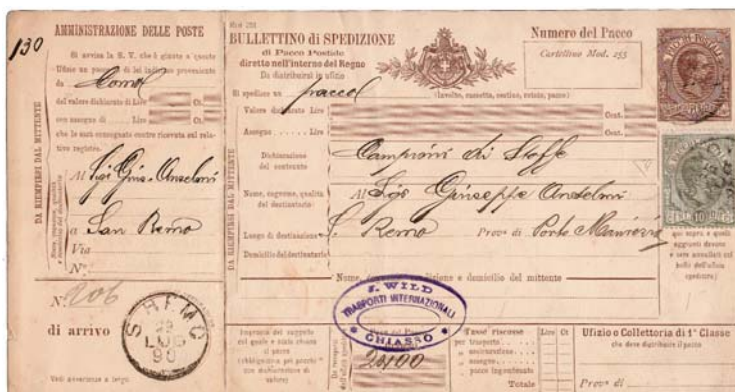 130
AMMINISTRAZIONE DELLE POSTE
Si avvisa la S. V. che è giunto a questo
Ufizio un pacco di lei indirizzo proveniente
da Como
del valore dichiarato di Lire Ct.
con assegno di Lire Ct.
che le sarà consegnato contro ricevuta sul relativo registro.
Al Sigr Gius. Anselmi
a San Remo
Via
N.º
DA RIEMPIRSI DAL MITTENTE
N. 206
di arrivo
S. REMO
29
LUG
90
Vedi avvertenze a tergo.
Mod. 251
BULLETTINO di SPEDIZIONE
di Pacco Postale
diretto nell'interno del Regno
Da distribuirsi in ufizio
Numero del Pacco
Cartellino Mod. 255
Si spedisce un pacco
(involto, cassetta, cestino, rotolo, pacco)
Valore dichiarato Lire Cent.
Assegno Lire Cent.
Dichiarazione
del contenuto
Campioni di Stoffe
Nome, cognome, qualità
del destinatario
Al Sigr Giuseppe Anselmi
Luogo di destinazione S. Remo Prov.ª di Porto Maurizio
Domicilio del destinatario
DA RIEMPIRSI DAL MITTENTE
qui sopra e quelli
aggiunti devono
essere annullati col
bollo dell'ufizio
speditore
J. WILD
TRASPORTI INTERNAZIONALI
CHIASSO
Impronta del suggello
col quale è stato chiuso
il pacco
Peso del Pacco
Tasse riscosse Lire Ct
per trasporto
" assicurazione
" assegno
" pacco ingombrante
Totale
Ufizio o Collettoria di 1ª Classe
che deve distribuire il pacco
Prov.ª di